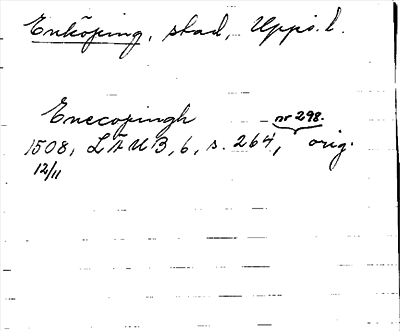 Enköping, stad, Upps. l.
Enecopingh nr 298.
1508, LÄUB, 6, s. 264, orig.
12/11